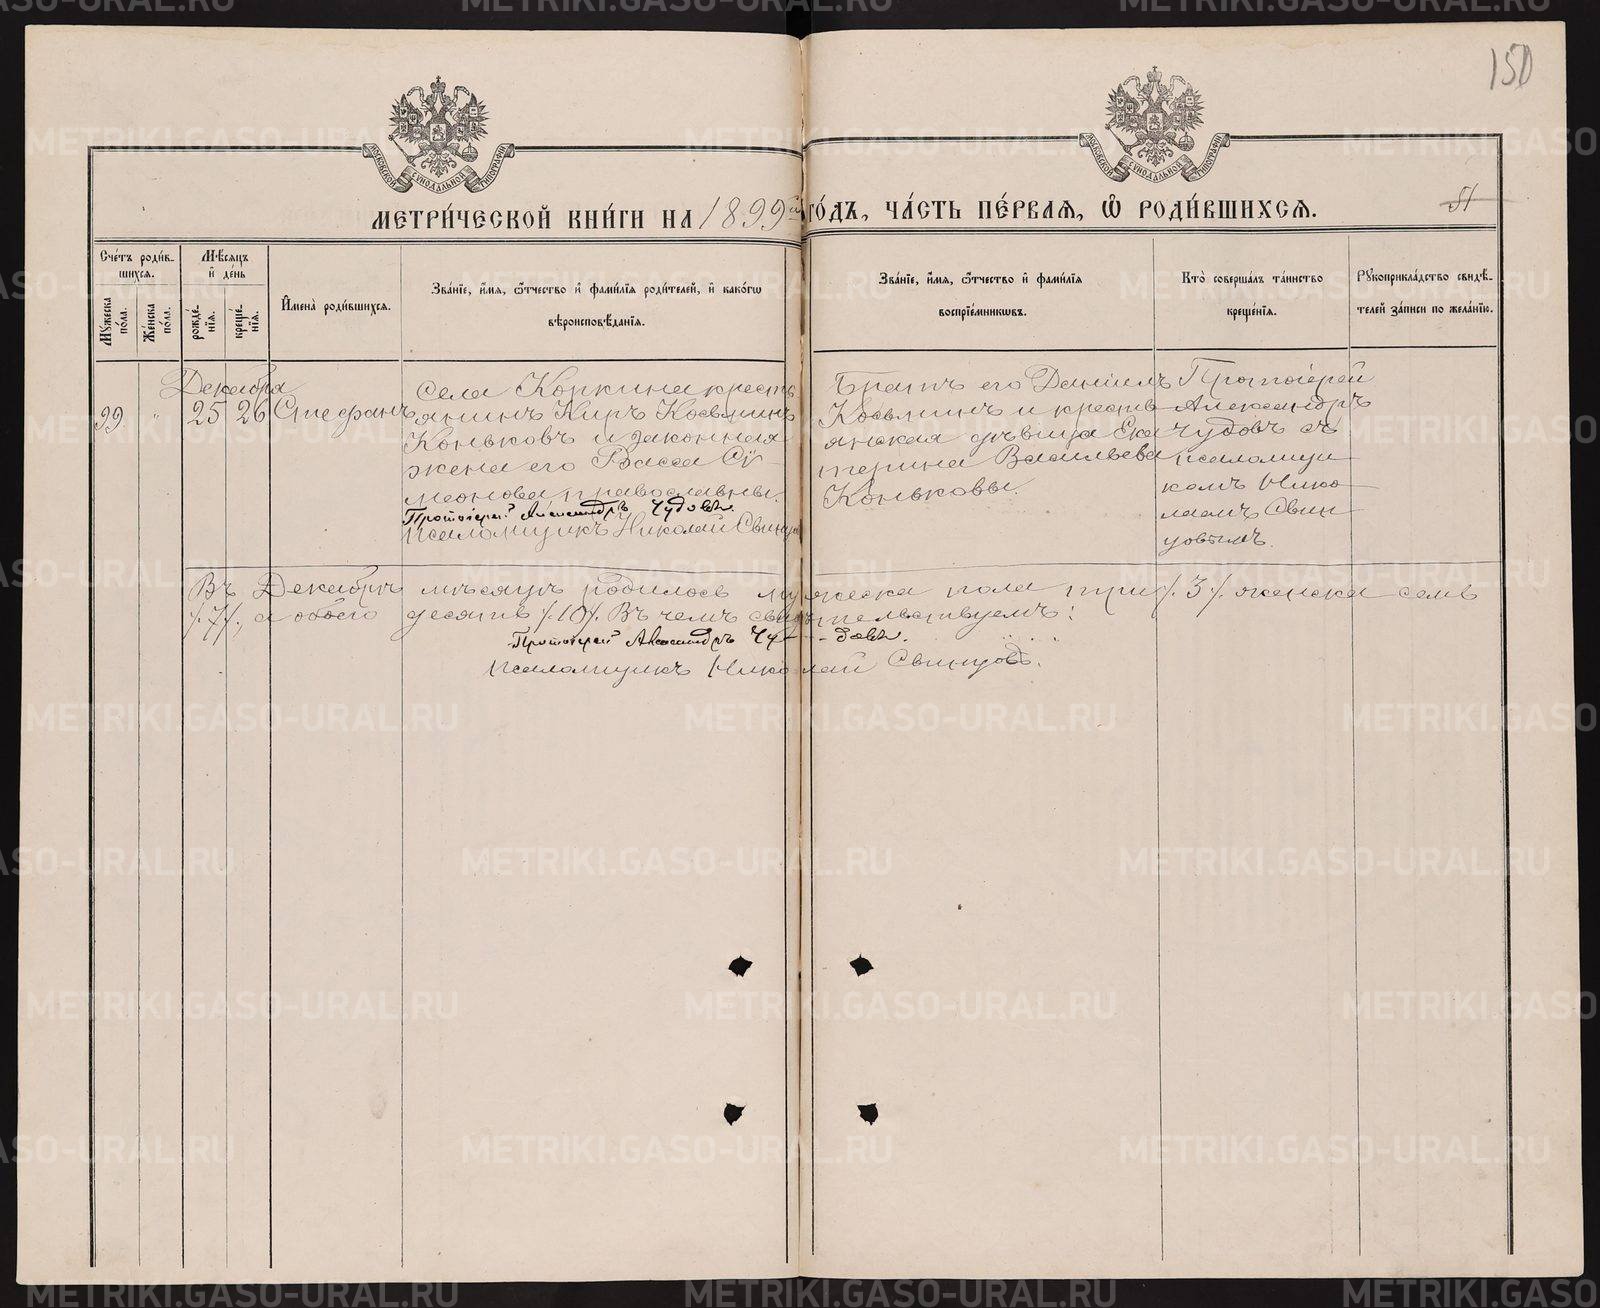 150
МОСКОВСКОЙ СѴНОДАЛЬНОЙ ТИПОГРАФІИ
МОСКОВСКОЙ СѴНОДАЛЬНОЙ ТИПОГРАФІИ
МЕТРИ́ЧЕСКОЙ КНИ́ГИ НА 1899й ГО́ДЪ, ЧА́СТЬ ПЕ́РВАЯ, Ѽ РОДИ́ВШИХСЯ.
51
Сче́тъ роди́в-
шихся.
Мѣсяцъ
и҆ де́нь
Мꙋжеска
пола.
Же́нска
по́ла.
рожде́-
нїѧ.
креще́-
нїѧ.
И҆мена̀ роди́вшихся.
Зва́нїе, и҆́мя, ѿтчество и҆ фами́лїя роди́телей, и҆ како́гѡ
вѣроисповѣ́данїя.
Зва́нїе, и҆́мя, ѿтчество и҆ фами́лїя
воспрїе́мниковъ.
Кто̀ соверша́лъ та́инство
креще́нїя.
Рꙋкоприкла́дство свидѣ́-
телей за́писи по жела́нїю.
Декабря
99 " 25 26 Стефанъ
села Коркина кресть-
янинъ Киръ Косьминъ
Коньковъ и законная
жена его Васса Сѵ-
меонова, православны.
Протоіерей Александръ Чудовъ.
Псаломщикъ Николай Свинцов
Братъ его Даніилъ
Косьминъ и кресть-
янская дѣвица Ека
терина Васильева
Коньковы.
Протоіерей
Александръ
Чудовъ съ
псаломщи
комъ Нико
лаемъ Свин
цовымъ.
Въ Декабрѣ мѣсяцѣ родилось мужеска пола три /.3./. женска семь
/.7./., а обоего десять /.10/. Въ чемъ свидѣтельствуемъ:
Протоіерей Александръ Чу-довъ.
Псаломщикъ Николай Свинцовъ.
METRIKI.GASO-URAL.RU